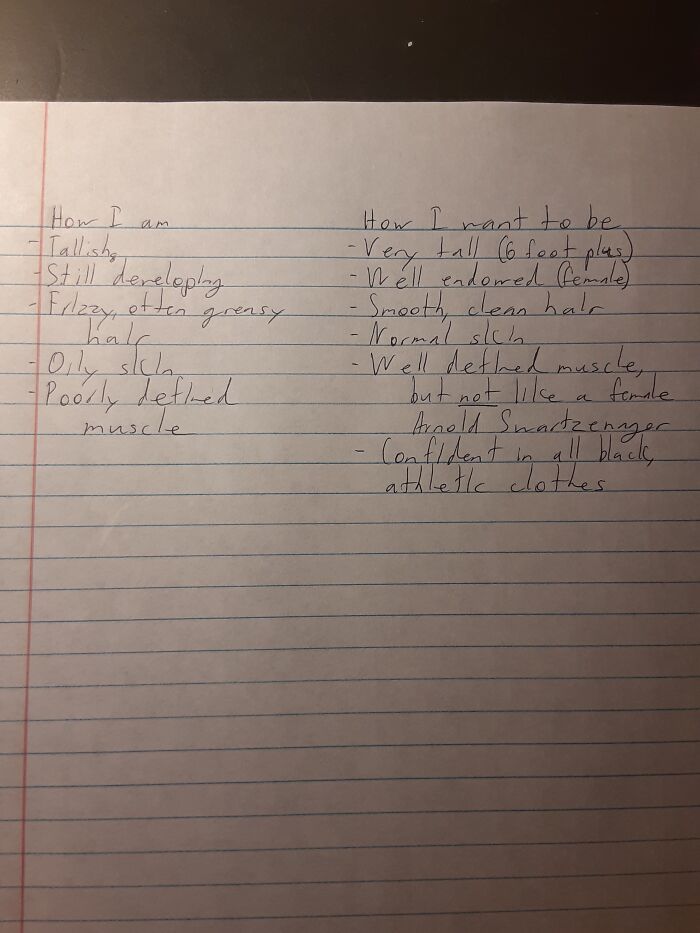 How I am
- Tallish
- Still developing
- Frizzy, often greasy
hair
- Oily skin
- Poorly defined
muscle
How I want to be
- Very tall (6 foot plus)
- Well endowed (female)
- Smooth, clean hair
- Normal skin
- Well defined muscle,
but not like a female
Arnold Swartzennager
- Confident in all black,
athletic clothes